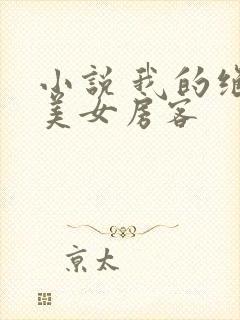 小说我的绝
美女房客
京太